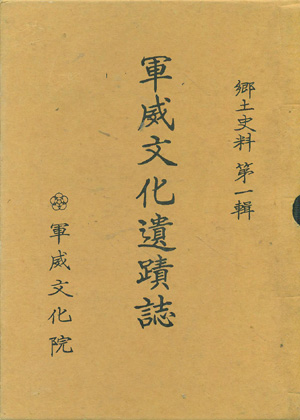 鄕土史料 第一輯
軍威文化遺蹟誌
軍威文化院